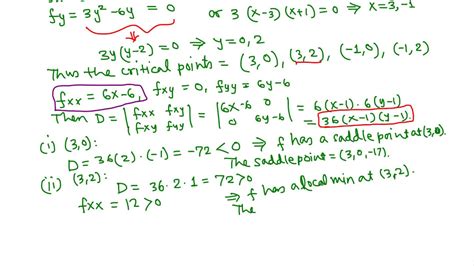 fy = 3y² - 6y = 0 or 3(x-3)(x+1) = 0 ⇒ x = 3, -1
3y(y-2) = 0 ⇒ y = 0, 2
Thus the critical points = (3,0), (3,2), (-1,0), (-1,2)
fxx = 6x-6, fxy = 0, fyy = 6y-6
Then D = |fxx fxy| = |6x-6 0| = 6(x-1)·6(y-1)
|fxy fyy| |0 6y-6| = 36(x-1)(y-1).
(i) (3,0):
D = 36(2)·(-1) = -72 < 0 ⇒ f has a saddle point at (3,0).
The saddle point = (3,0,-17).
(ii) (3,2):
D = 36·2·1 = 72 > 0
fxx = 12 > 0 ⇒ f has a local min at (3,2).
The